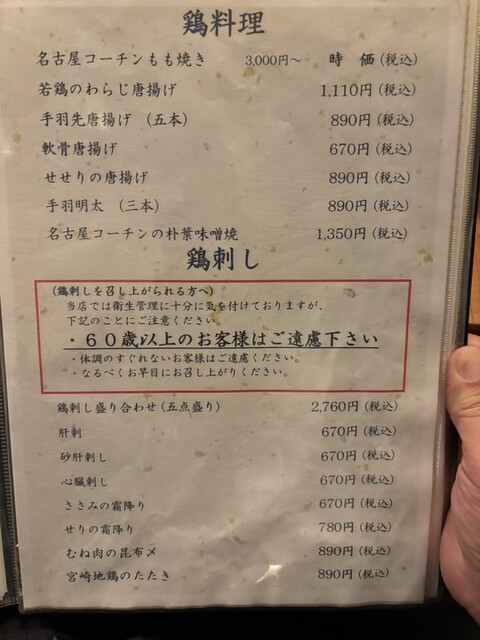 鶏料理
名古屋コーチンもも焼き 3,000円～ 時 価(税込)
若鶏のわらじ唐揚げ 1,110円(税込)
手羽先唐揚げ (五本) 890円(税込)
軟骨唐揚げ 670円(税込)
せせりの唐揚げ 890円(税込)
手羽明太 (三本) 890円(税込)
名古屋コーチンの朴葉味噌焼 1,350円(税込)
鶏刺し
(鶏刺しを召し上がられる方へ)
当店では衛生管理に十分に気を付けておりますが、
下記のことにご注意ください。
・60歳以上のお客様はご遠慮下さい
・体調のすぐれないお客様はご遠慮ください。
・なるべくお早目にお召し上がりください。
鶏刺し盛り合わせ(五点盛り) 2,760円(税込)
肝刺 670円(税込)
砂肝刺し 670円(税込)
心臓刺し 670円(税込)
ささみの霜降り 670円(税込)
せりの霜降り 780円(税込)
むね肉の昆布〆 890円(税込)
宮崎地鶏のたたき 890円(税込)